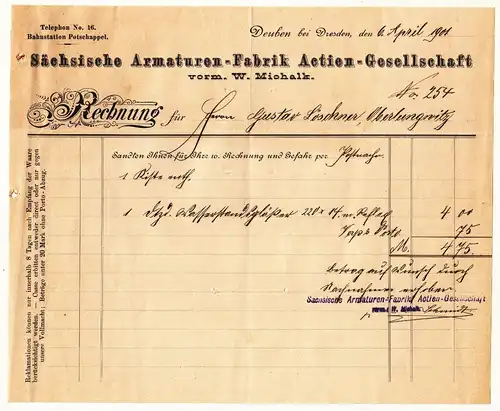 Telephon No. 16.
Bahnstation Potschappel.
Deuben bei Dresden, den 6. April 1901
Sächsische Armaturen-Fabrik Actien-Gesellschaft
vorm. W. Michalk.
No. 254
Rechnung für Herrn Gustav Löschner, Oberlungwitz
Sandten Ihnen für Ihre w. Rechnung und Gefahr per Postnachn.
1 Kiste enth.
1 Dtzd. Wasserstandsgläser 220 x 14 m. 4 00
Porto 75
M. 4 75
Betrag auf Wunsch durch
Nachnahme erhoben
Sächsische Armaturen-Fabrik Actien-Gesellschaft
vorm. W. Michalk.
Reklamationen können nur innerhalb 8 Tagen nach Empfang der Waare
berücksichtigt werden. — Casse erbitten entweder direct oder nur gegen
unsere Vollmacht; Beträge unter 20 Mark ohne Porto-Abzug.